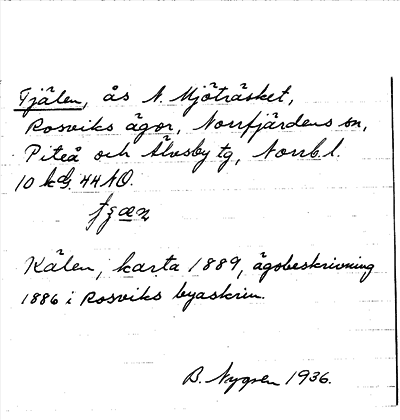 Tjälen, ås N. Mjöträsket,
Rosviks ägor, Norrfjärdens sn,
Piteå och Älvsby tg, Norrb. l.
10 kds. 44 NO.
Kälen, karta 1889, ägobeskrivning
1886 i Rosviks byaskrin.
B. Nygren 1936.